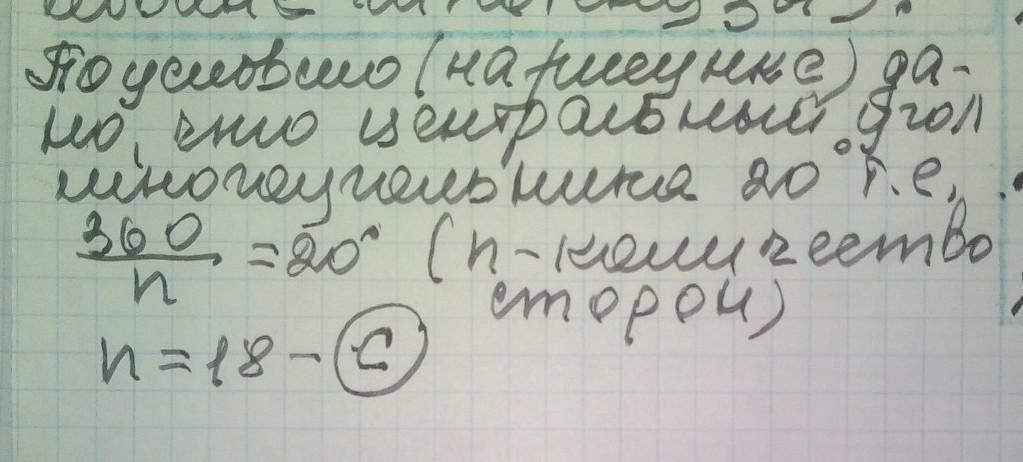 По условию (на рисунке) да-
но, что центральный угол
многоугольника 20° т.е.
360/n = 20° (n - количество
сторон)
n = 18 - C